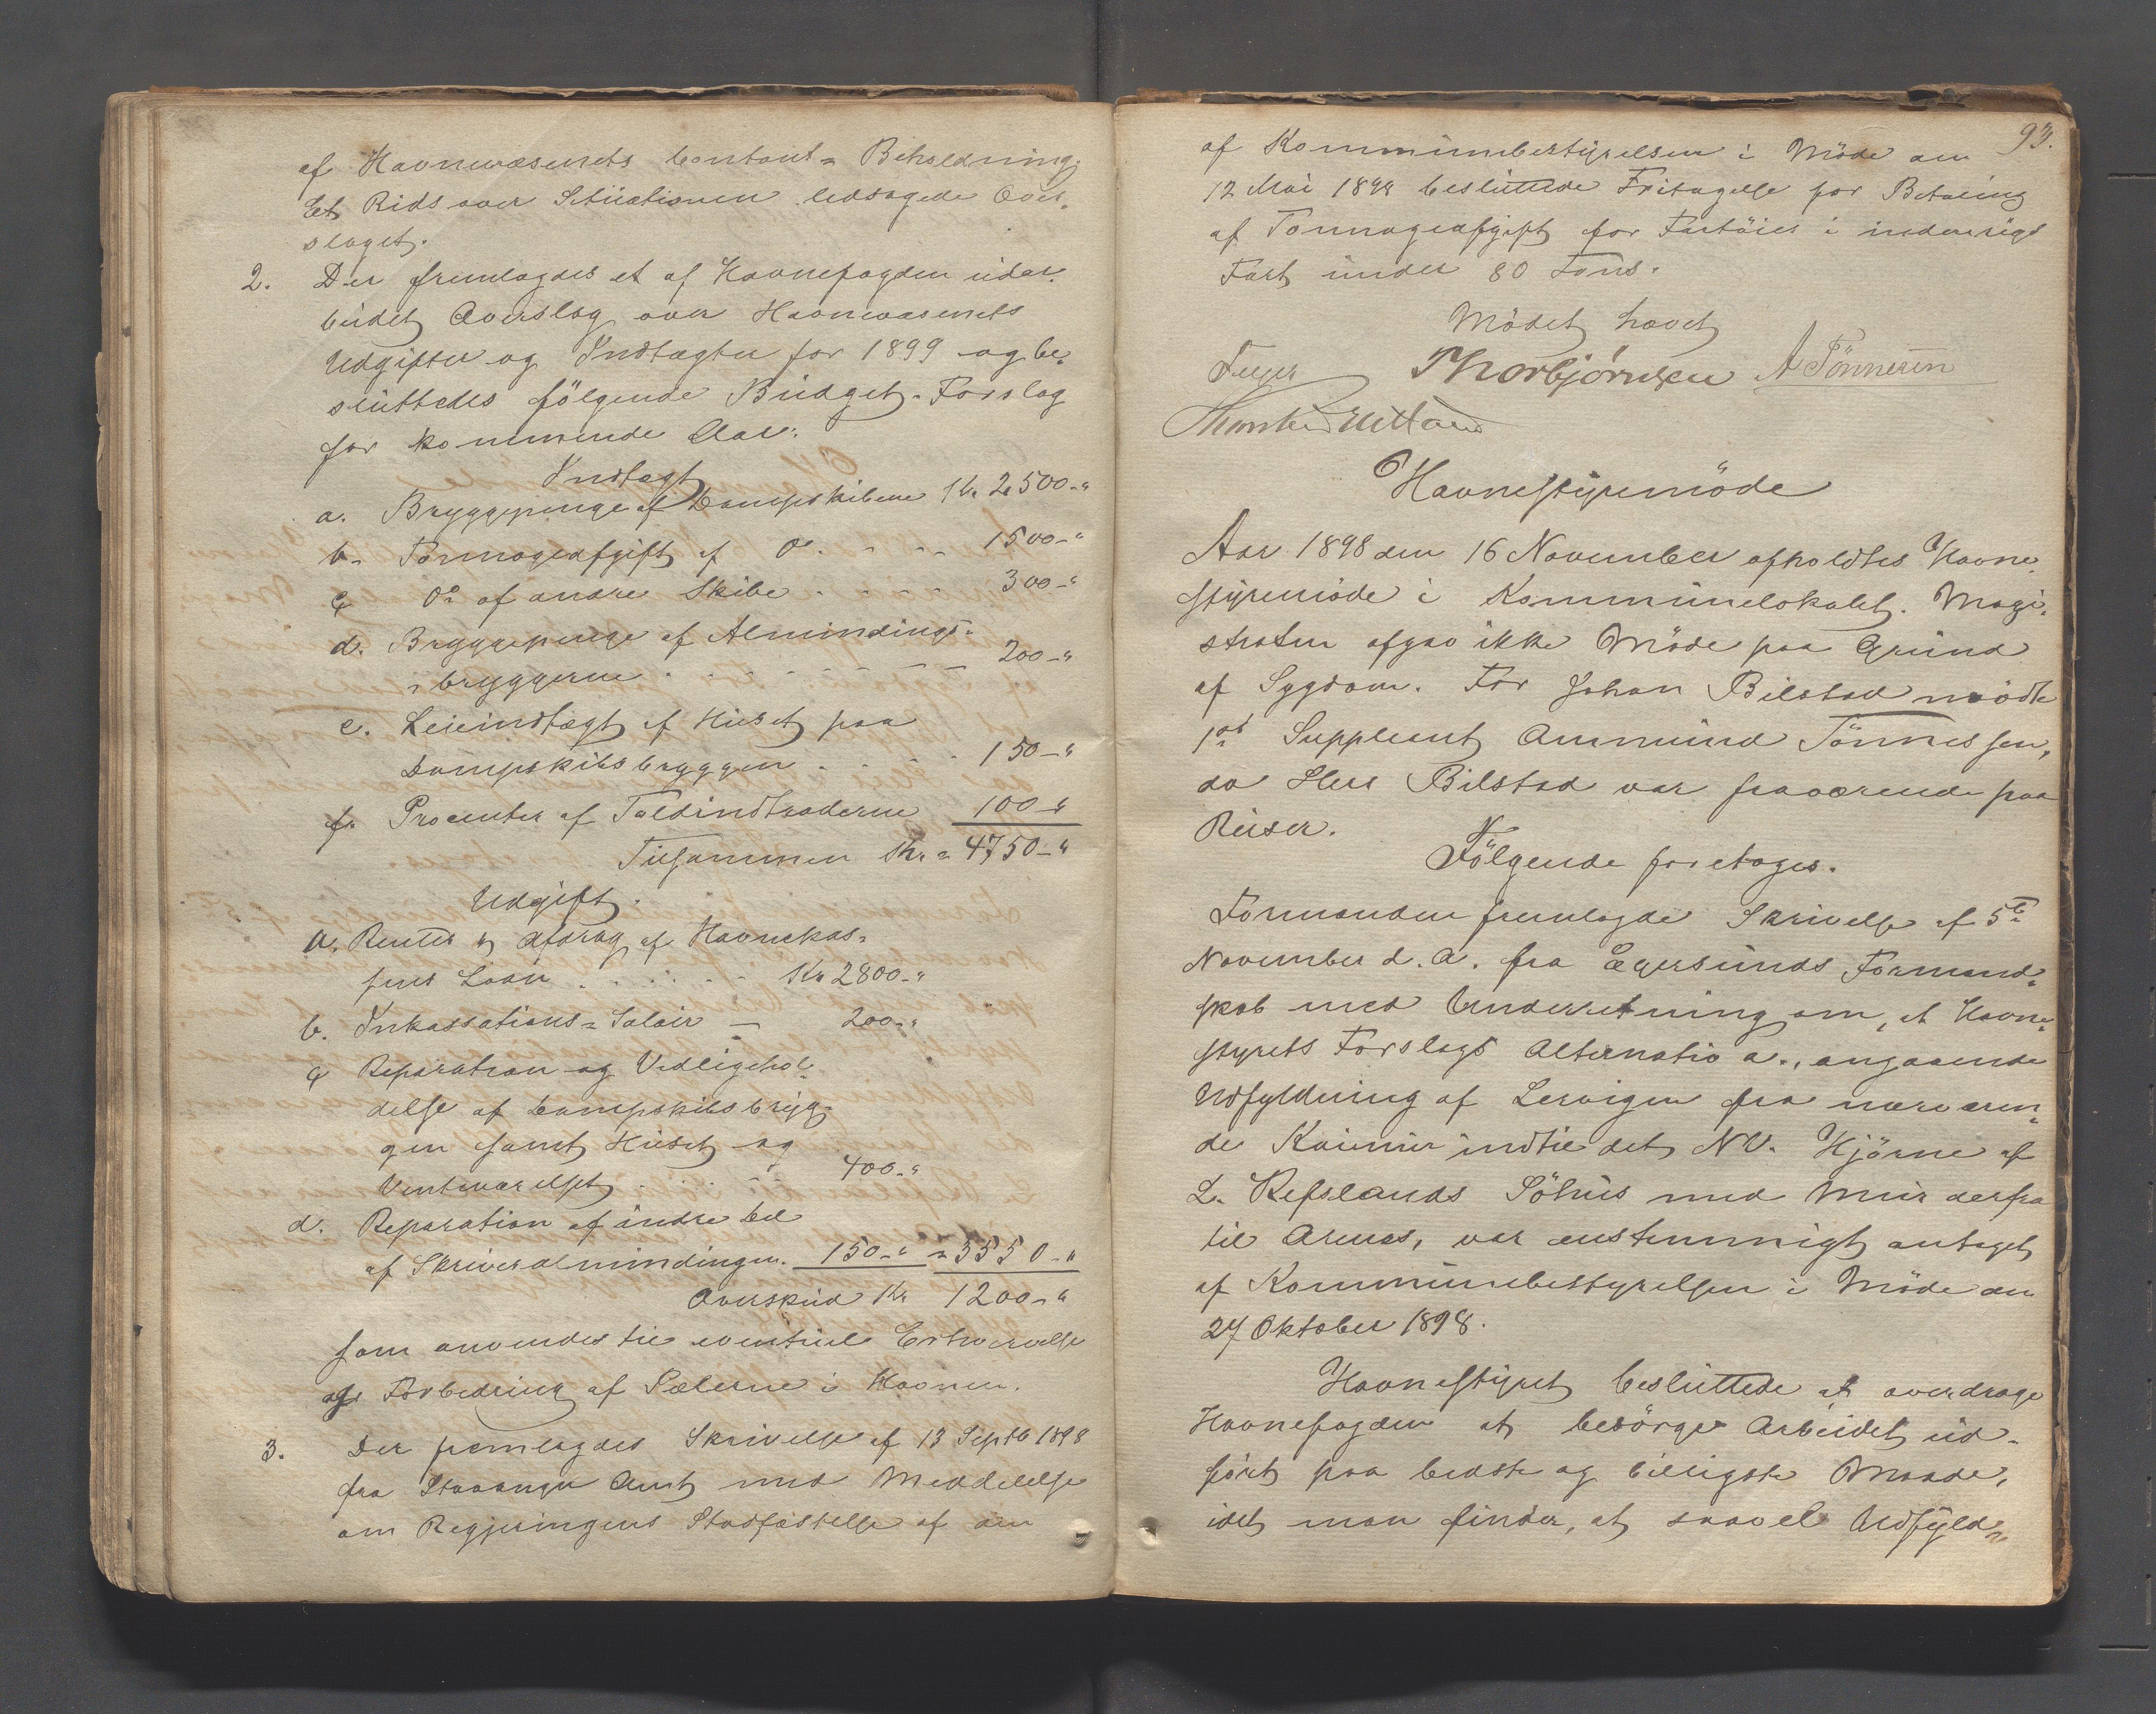 af Havnevæsenets Contant-Beholdning.
Et Rids over Situationen ledsagede Over-
slaget.
2. Der fremlagdes et af Havnefogden udar-
beidet Overslag over Havnevæsenets
Udgifter og Indtægter for 1899 og be-
sluttedes følgende Budget-Forslag
for kommende Aar:
Indtægt
a. Bryggepenge af Dampskibene Kr. 2,500-"
b. Tonnageafgift af Do. . . . 1500-"
c. Do. af andre Skibe . . . . 300-"
d. Bryggepenge af Almindings-
bryggerne . . . . . . . 200-"
e. Leieindtægt af Huset paa
Dampskibsbryggen . . . . 150-"
f. Procenter af Toldindtraderne 100-"
Tilsammen Kr. 4750-"
Udgift.
a. Renter & Afdrag af Havnekas-
sens Laan . . . . . Kr 2800-"
b. Inkassations-Salair — 200-"
c. Reparation og Vedligehol-
delse af Dampskibsbryg-
gen samt Huset og
Venteværelset . . . . 400-"
d. Reparation af indre Del
af Skriveralmindingen. 150-" 3550-"
Overskud Kr 1200-"
som anvendes til eventuel Erhvervelse
og Forbedring af Pælerne i Havnen.
3. Der fremlagdes Skrivelse af 13 Septb 1898
fra Stavanger Amt med Meddelelse
om Regjeringens Stadfæstelse af den
93.
af Kommunebestyrelsen i Møde den
12 Mai 1898 besluttede Fritagelse for Betaling
af Tonnageafgift for Fartøier i indenrigs
Fart under 80 Tons.
Mødet hævet
Feyer Thorbjørnsen A Tönnesen
Havnestyremøde
Aar 1898 den 16 November afholdtes Havne-
styremøde i Kommunelokalet. Magi-
straten afgav ikke Møde paa Grund
af Sygdom. For Johan Bilstad mødte
1ste Suppleant Ommund Tönnessen,
da Herr Bilstad var fraværende paa
Reiser.
Følgende foretoges.
Formanden fremlagde Skrivelse af 5te
November d. A. fra Egersunds Formand-
skab med Underretning om, at Havne-
styrets Forslags Alternativ a., angaaende
Udfyldning af Lervigen fra nærværen-
de Kaimur indtil det NV. Hjørne af
L. Refslands Søhus med Mur derfra
til Arenes, var enstemmigt antaget
af Kommunebestyrelsen i Møde den
27 Oktober 1898.
Havnestyret besluttede at overdrage
Havnefogden at besørge Arbeidet ud-
ført paa bedste og billigste Maade,
idet man finder, at saavel Udfyld-